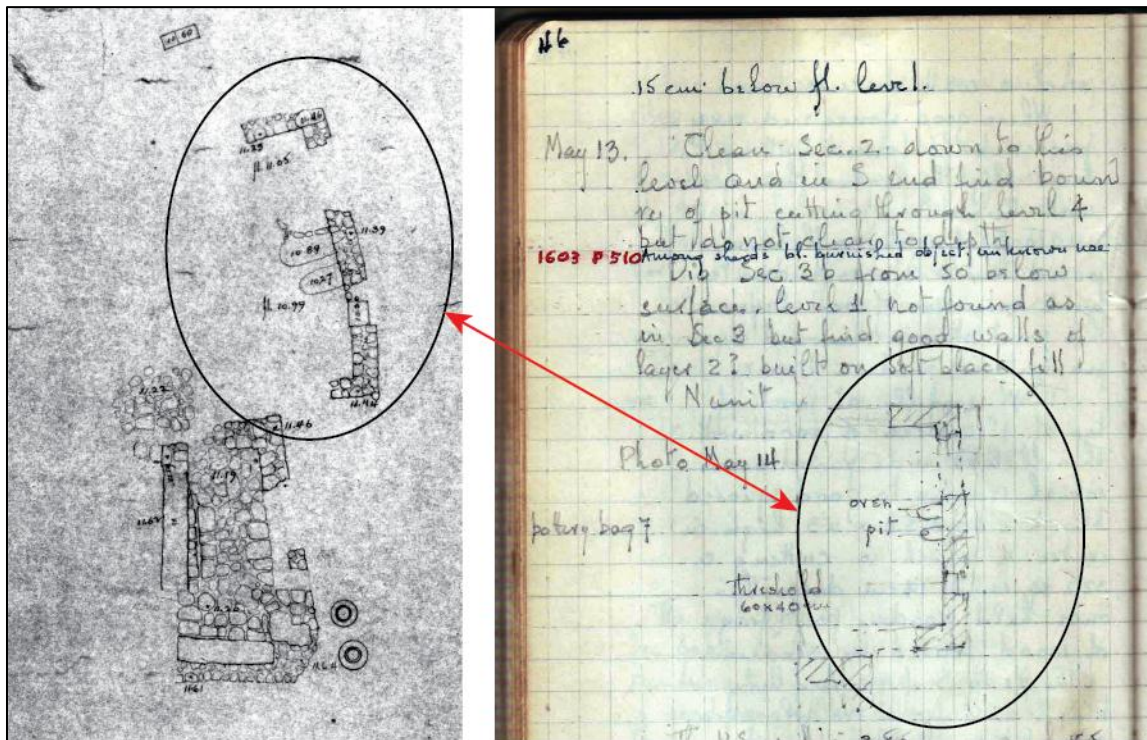 11.46
fl. 11.05
11.39
10.89
10.27
fl. 10.99
11.44
11.22
11.46
11.19
11.62
11.61
46
15 cm. below fl. level.
May 13. Clean Sec. 2 down to this
level and in S end find boun
ry of pit cutting through level 4
but do not clean to depth
1603 P 510 Among sherds bl. burnished object, unknown use
Dig Sec 3b from 50 below
surface. level 1 not found as
in Sec 3 but find good walls of
layer 2? built on soft black fill.
N unit
Photo May 14
oven
pit
potery bag 7
threshold
60x40 cm